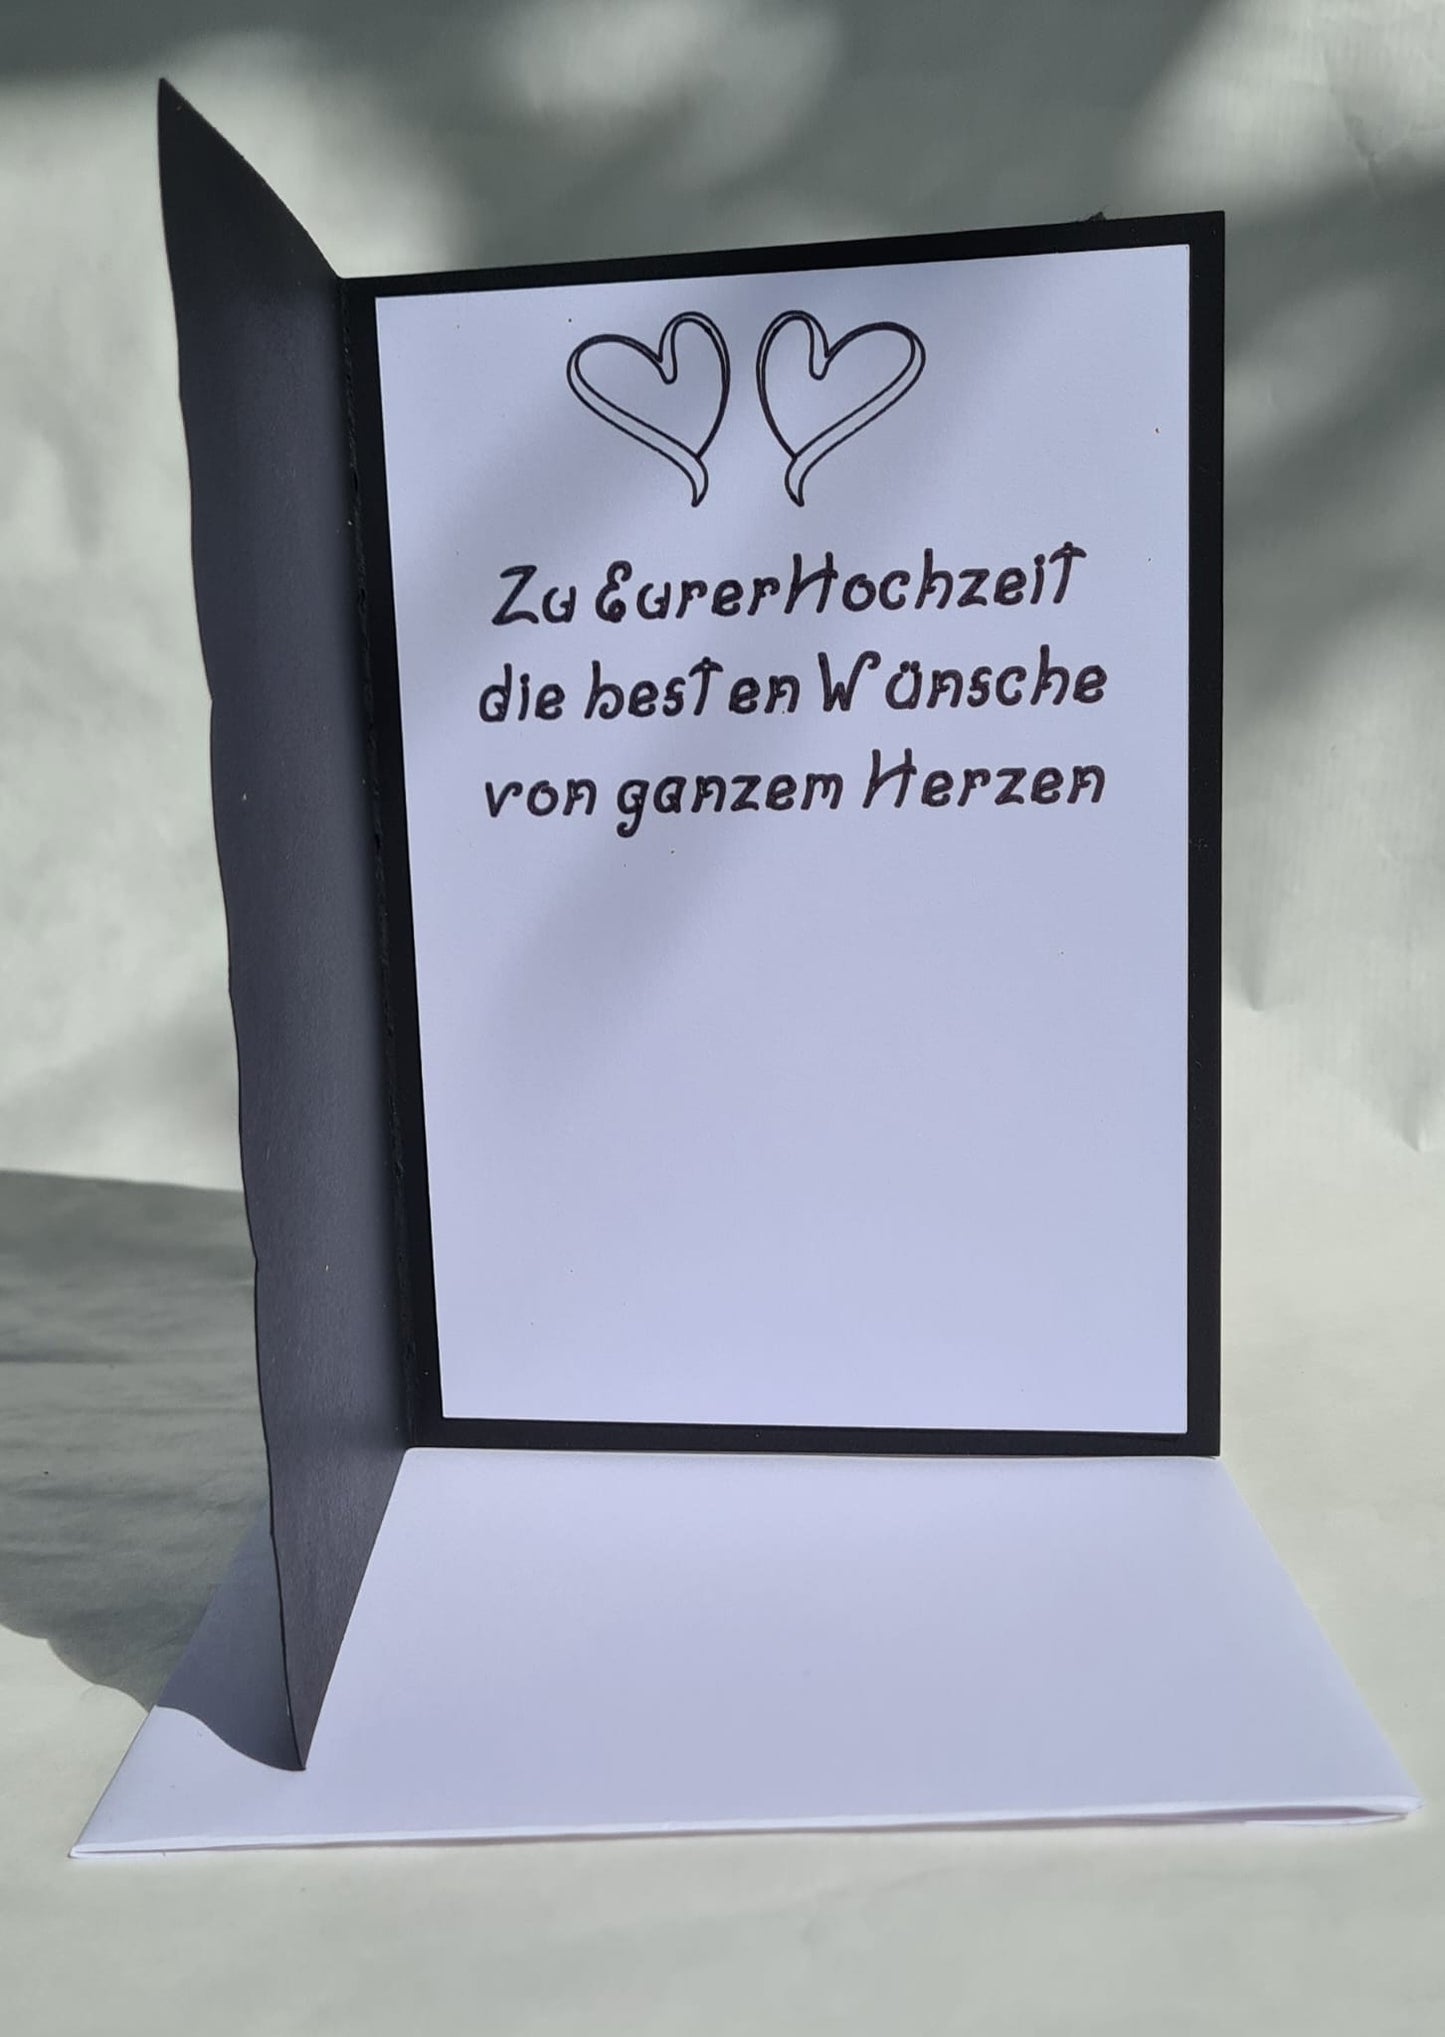 Zu Eurer Hochzeit
die besten Wünsche
von ganzem Herzen